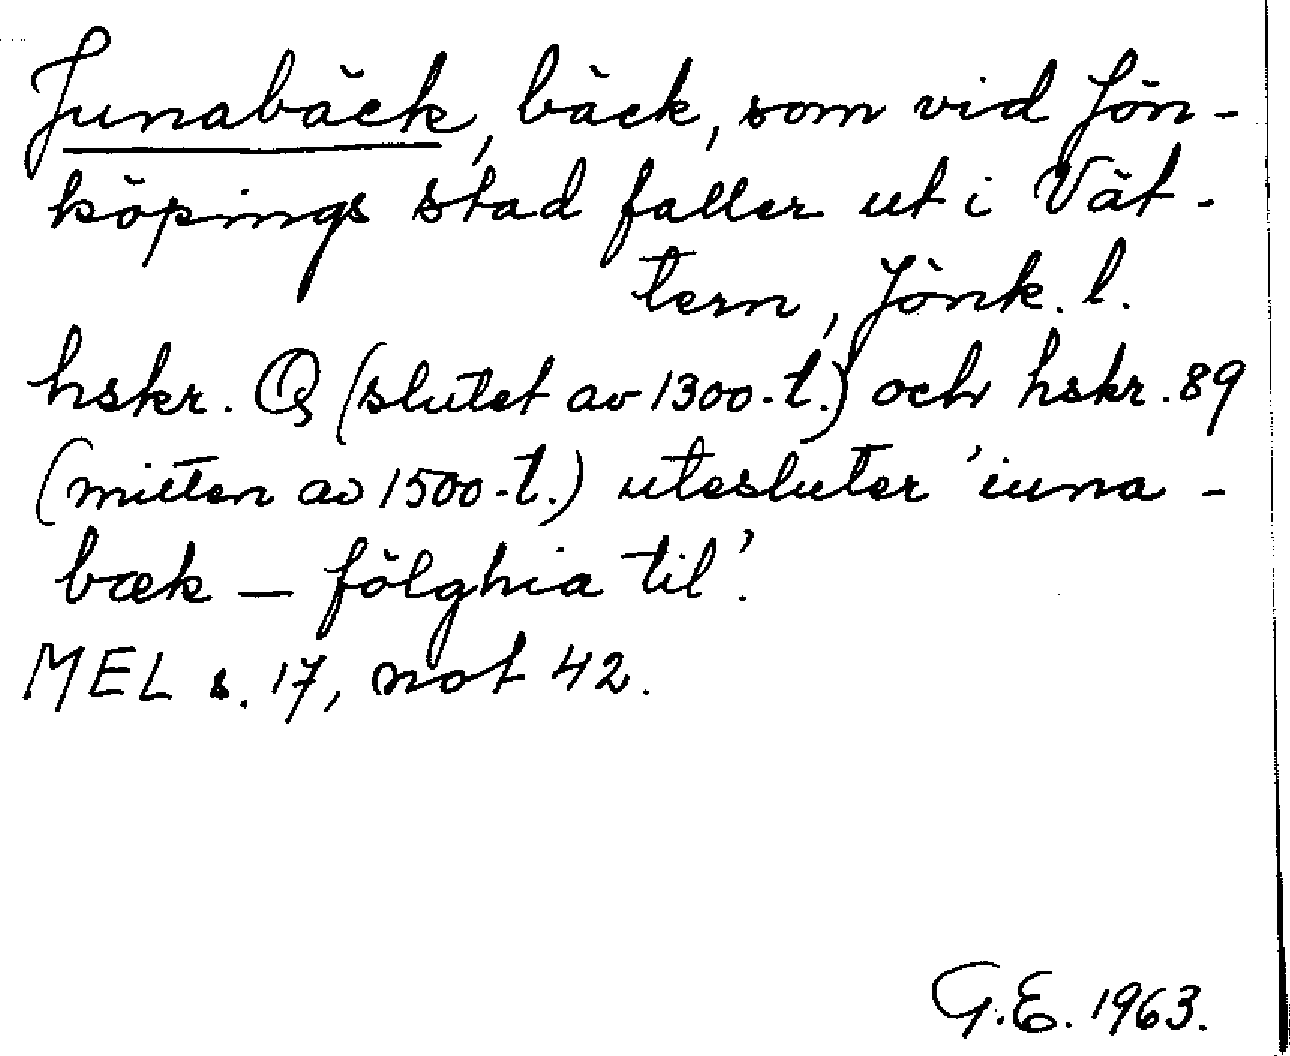 Junabäck, bäck, som vid Jön-
köpings stad faller ut i Vät-
tern, Jönk. l.
hskr. Q (slutet av 1300-t.) och hskr. 89
(mitten av 1500-t.) utesluter 'iuna-
bæk — fölghia til'.
MEL s. 17, not 42.
G.E. 1963.